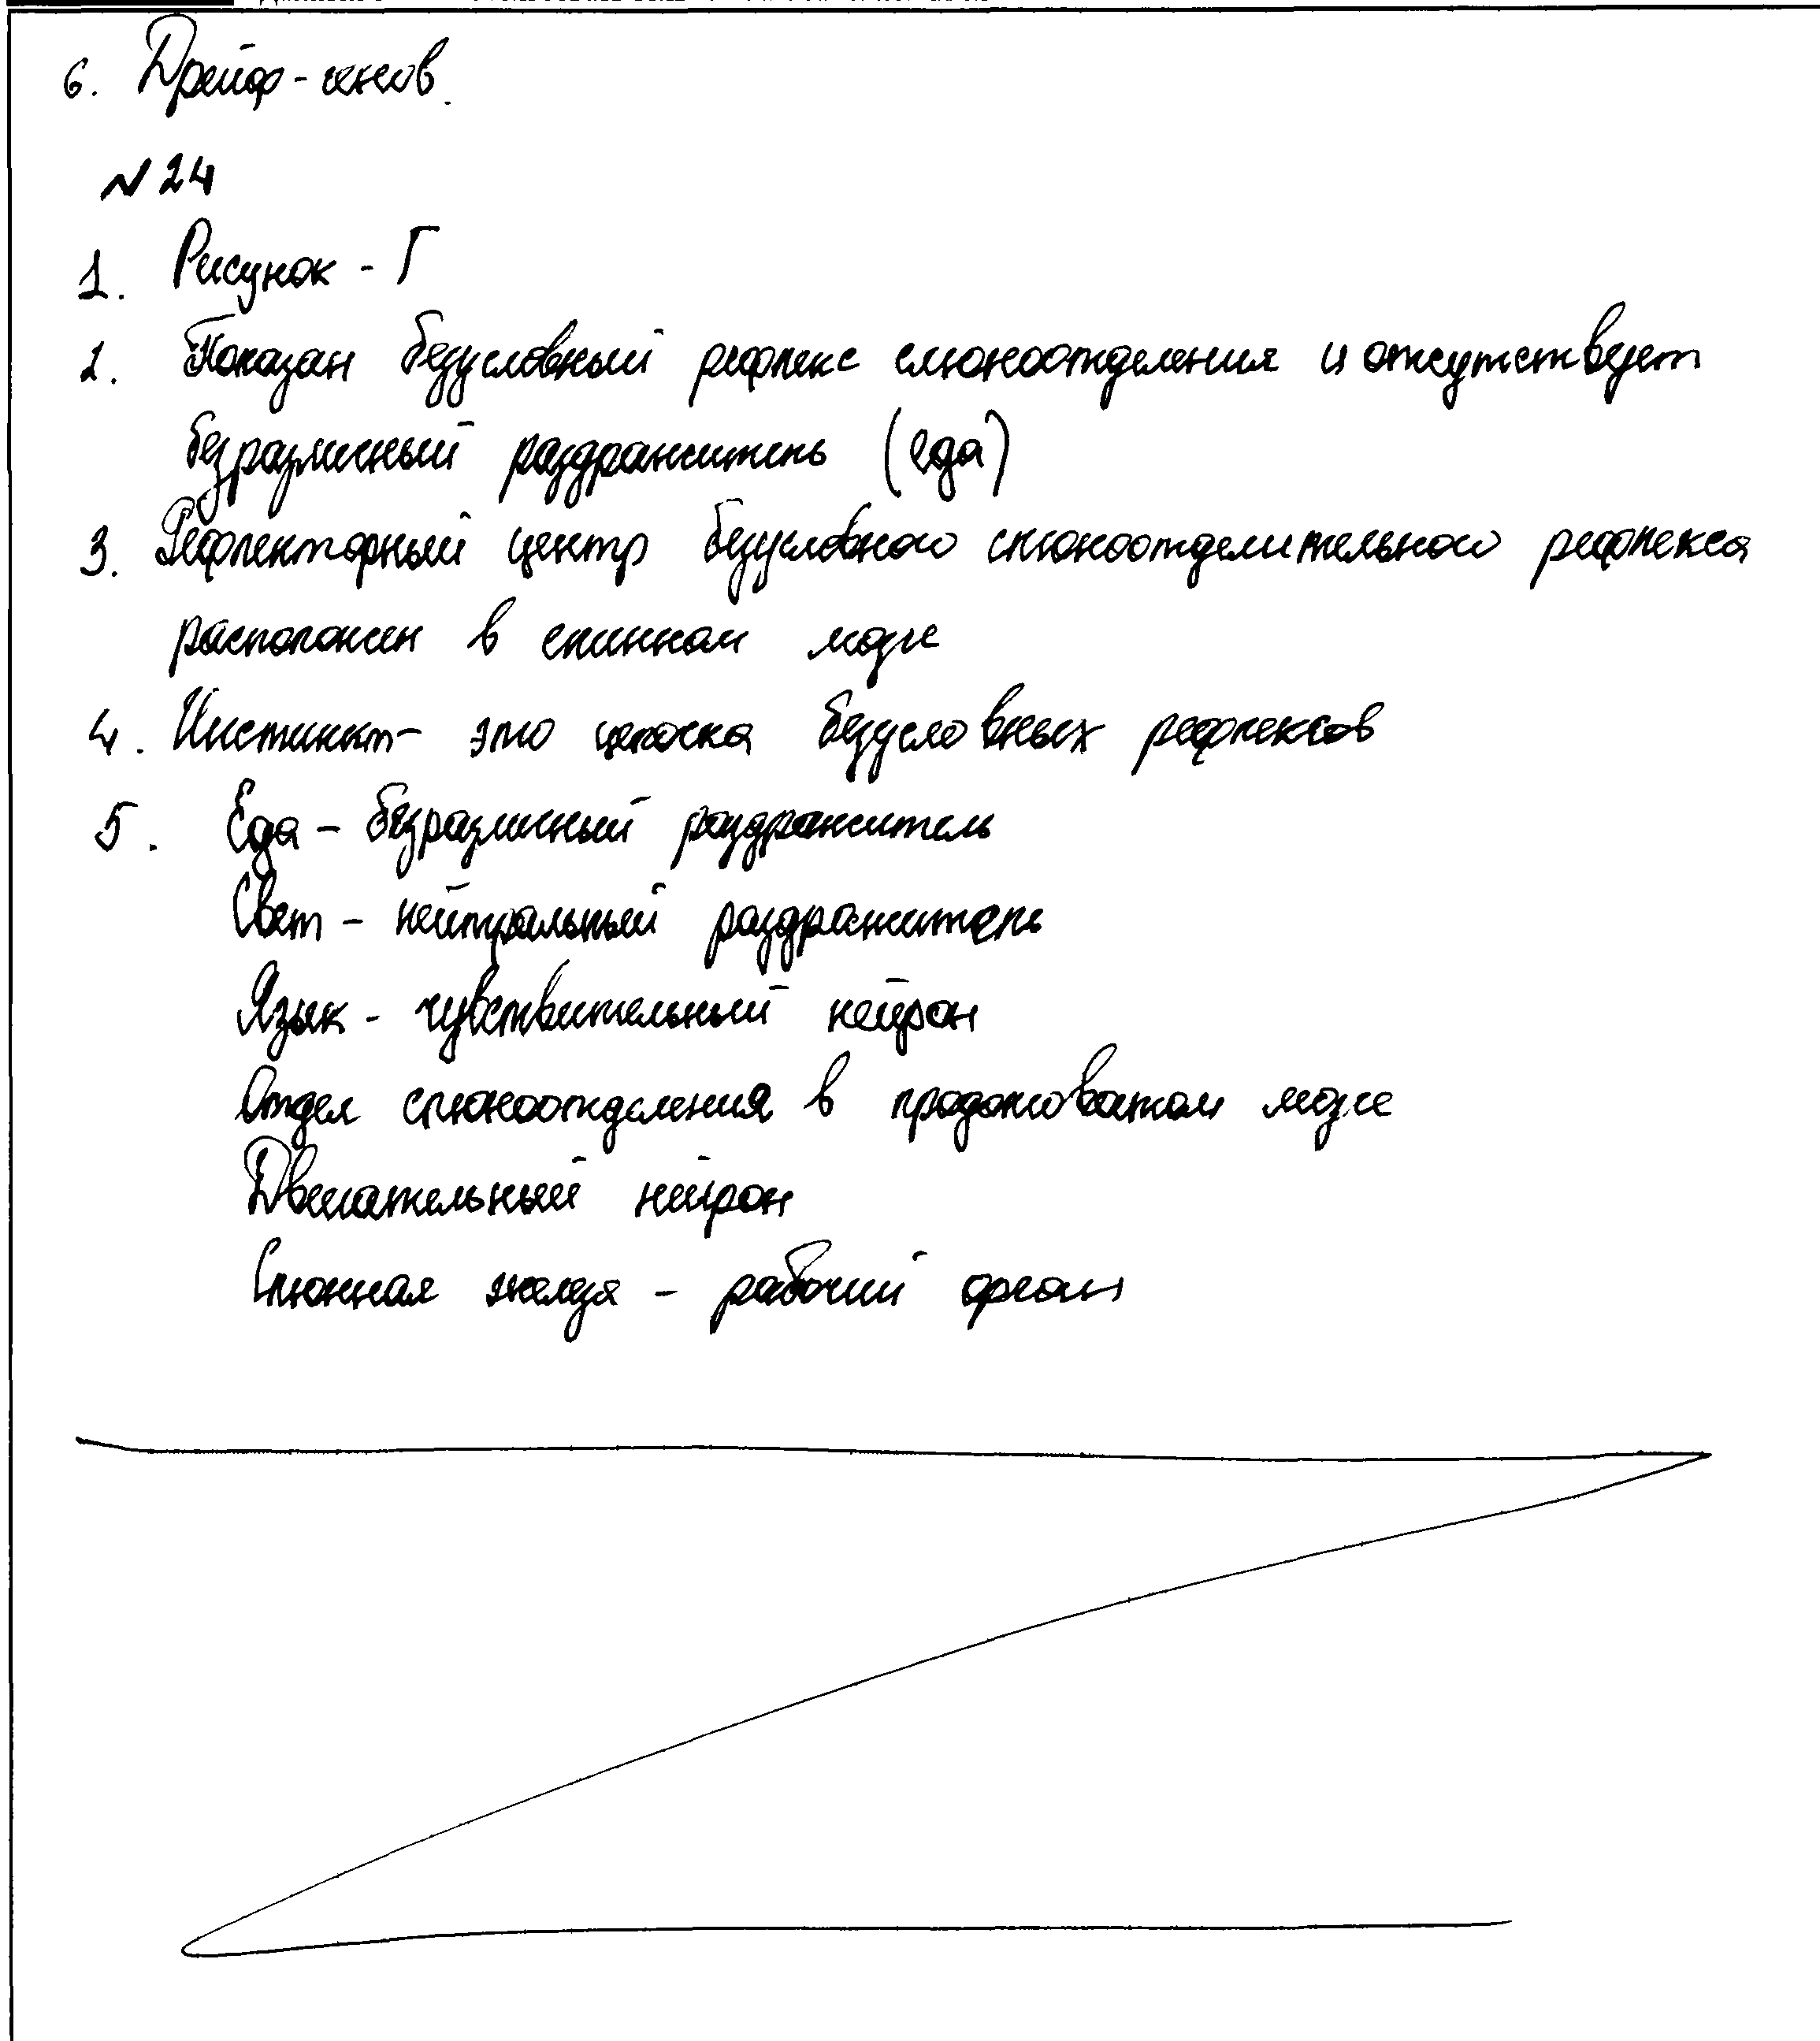 6. Дрейф-генов.
№24
1. Рисунок - Г
2. Показан безусловный рефлекс слюноотделения и отсутствует
безразличный раздражитель (еда)
3. Рефлекторный центр безусловного слюноотделительного рефлекса
расположен в спинном мозге
4. Инстинкт - это цепочка безусловных рефлексов
5. Еда - безразличный раздражитель
Свет - нейтральный раздражитель
Язык - чувствительный нейрон
Отдел слюноотделения в продолговатом мозге
Двигательный нейрон
Слюнная железа - рабочий орган